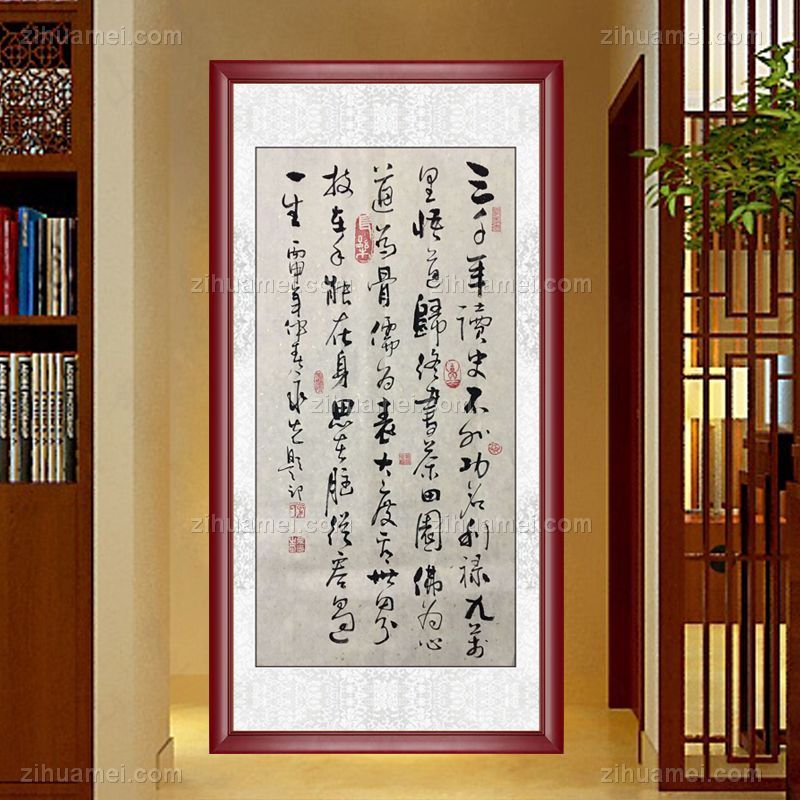 三千年讀史不外功名利祿九萬
里悟道歸終書茶田園佛为心
道為骨儒为表大度看世界
技在手能在身思在腦從容過
一生
丙申年仲春
題記
zihuamei.com
zihuamei.com
zihuamei.com
zihuamei.com
zihuamei.com
zihuamei.com
zihuamei.com
zihuamei.com
zihuamei.com
zihuamei.com